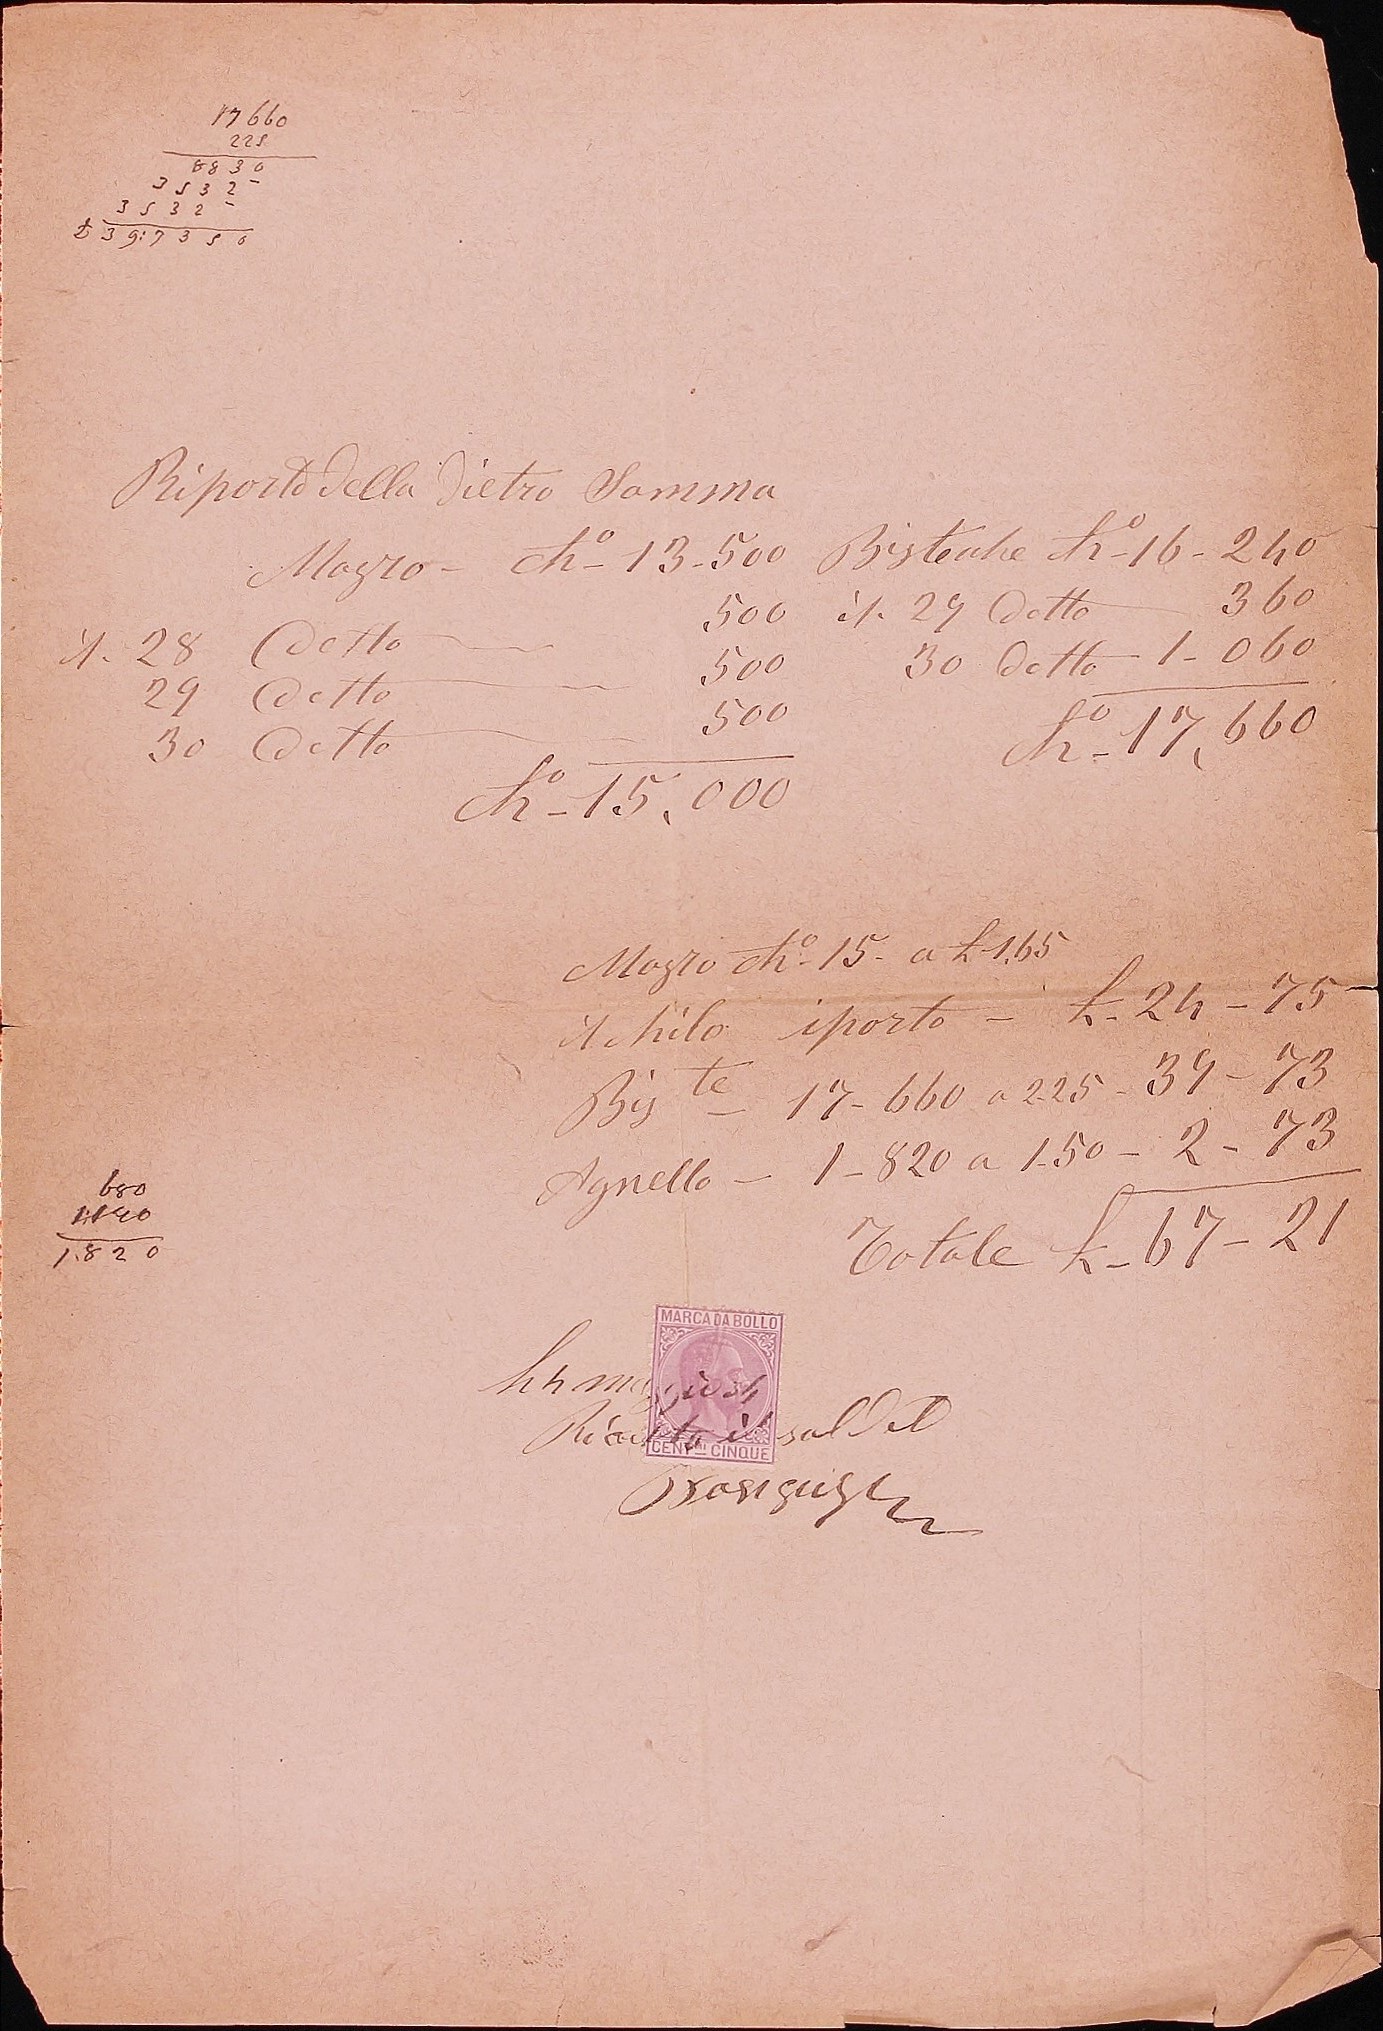 17660
225
8830
3532-
3532-
£ 39:7350
Riporto della dietro Somma
Magro - Ch⁰- 13-500
500
il. 28 Detto 500
29 Detto 500
30 Detto
Ch⁰- 15,000
Bisteche Ch⁰- 16-240
il. 29 Detto 360
30 Detto 1-060
Ch⁰- 17,660
Magro Ch⁰- 15- a £ 1,65
il Kilo iporto - £- 24-75
Bis te - 17-660 a 2-25 - 39-73
Agnello - 1-820 a 1-50 - 2-73
Totale £- 67-21
680
1140
1.820
MARCA DA BOLLO
li 4 maggio 84
CENTMI CINQUE